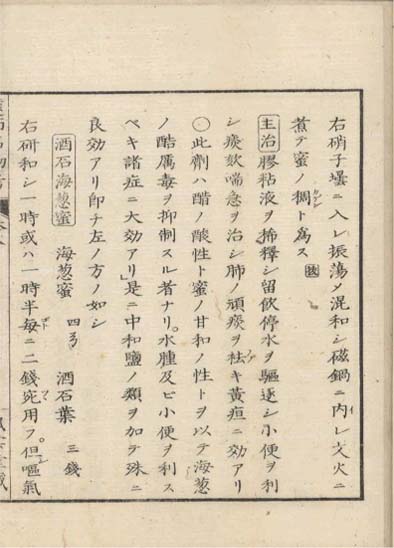 右硝子壜ニ入レ振蕩〆混和シ磁鍋ニ内レ文火ニ
煮テ蜜ノ稠ト為ス
主治 膠粘液ヲ稀釋シ留飲停水ヲ驅逐シ小便ヲ利
シ痰欬喘急ヲ治シ肺ノ頑痰ヲ祛キ黄疸ニ効アリ
○此劑ハ醋ノ酸性ト蜜ノ甘和ノ性トヲ以テ海葱
ノ酷厲毒ヲ抑制スル者ナリ。水腫及ビ小便ヲ利ス
ベキ諸症ニ大効アリ」是ニ中和鹽ノ類ヲ加テ殊ニ
良効アリ即チ左ノ方ノ如シ
酒石海葱蜜 海葱蜜 四 酒石葉 三錢
右研和シ一時或ハ一時半每ニ二錢宛用フ。但嘔氣